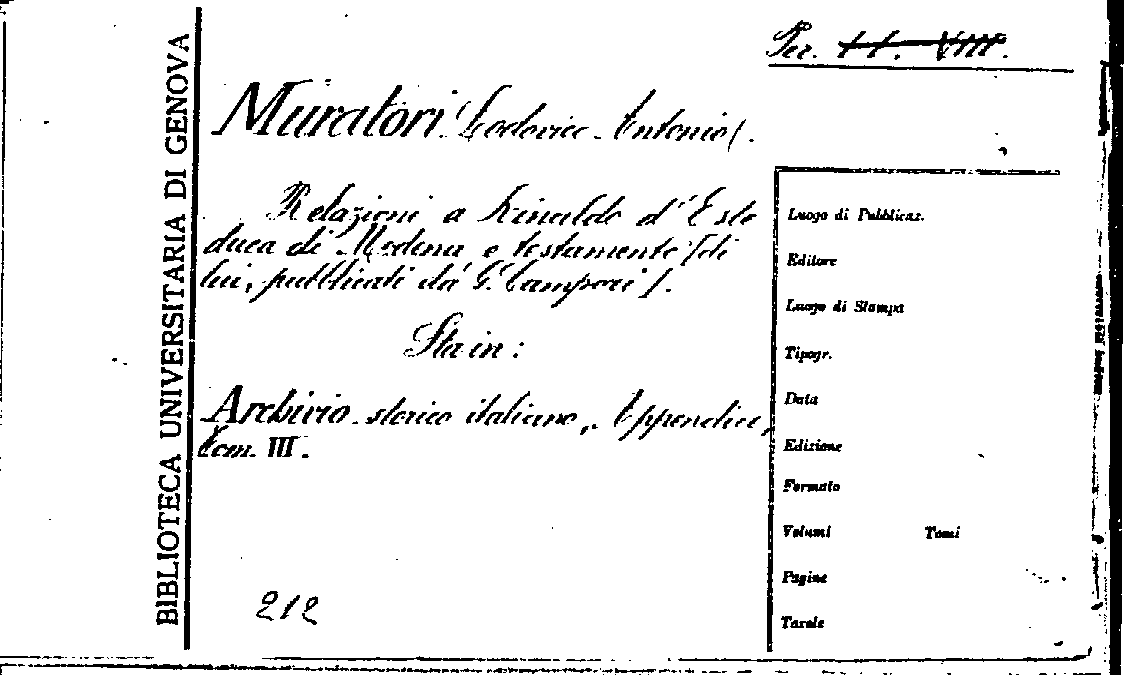 BIBLIOTECA UNIVERSITARIA DI GENOVA
Per. II. VIII.
Muratori (Lodovico Antonio).
Relazioni a Rinaldo d'Este
duca di Modena e testamento [di
lui, pubblicati da G. Campori].
Sta in:
Archivio storico italiano, Appendice,
Tom. III.
212
Luogo di Pubblicaz.
Editore
Luogo di Stampa
Tipogr.
Data
Edizione
Formato
Volumi Tomi
Pagine
Tavole